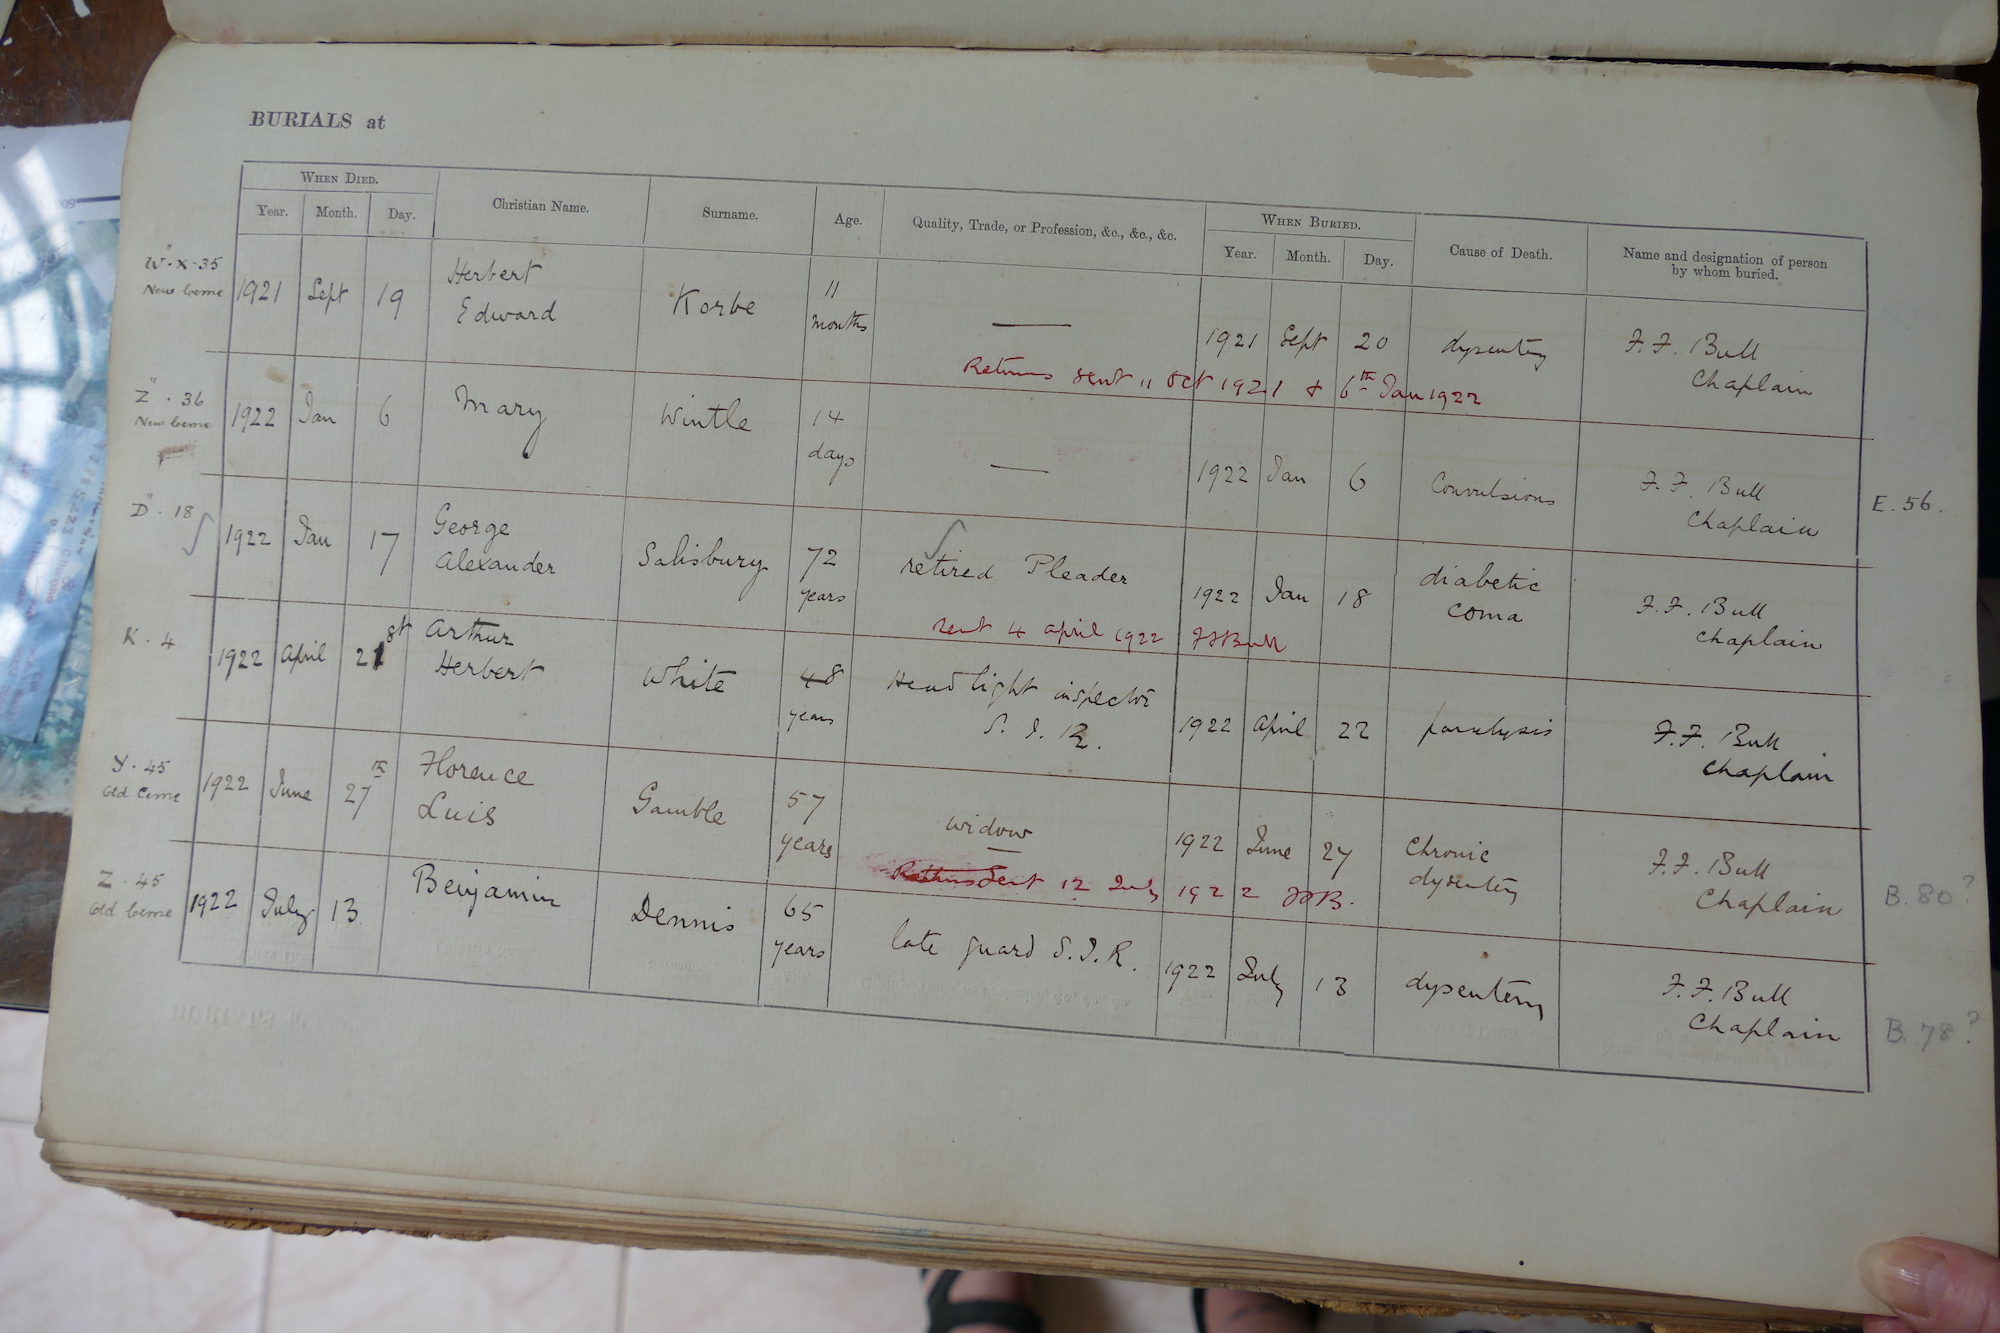 BURIALS at
WHEN DIED.
Year. Month. Day. Christian Name. Surname. Age. Quality, Trade, or Profession, &c., &c., &c.
WHEN BURIED.
Year. Month. Day. Cause of Death. Name and designation of person
by whom buried.
W"-X-35
New Ceme
1921 Sept 19 Herbert
Edward
Korbe
11
months
—
1921 Sept 20 dysentery F. F. Bull
Chaplain
Returns sent 11 Oct 1921 & 6th Jan 1922
Z" . 36
New Ceme
1922 Jan 6 Mary Wintle 14
days
—
1922 Jan 6 Convulsions F. F. Bull
Chaplain
E. 56.
D" . 18
1922 Jan 17 George
Alexander
Salisbury 72
years
retired Pleader
1922 Jan 18 diabetic
coma
F. F. Bull
Chaplain
sent 4 April 1922 FFBull
K . 4
1922 April 21st Arthur
Herbert
White 48
years
Head light inspector
S. I. R.
1922 April 22 paralysis F. F. Bull
Chaplain
Y . 45
Old Ceme
1922 June 27th Florence
Luis
Gamble 57
years
widow
1922 June 27 Chronic
dysentery
F. F. Bull
Chaplain
B. 80?
Sent 12 July 1922 FFB.
Z . 45
Old Ceme
1922 July 13 Benjamin Dennis 65
years
late guard S.I.R.
1922 July 13 dysentery F. F. Bull
Chaplain
B. 78?